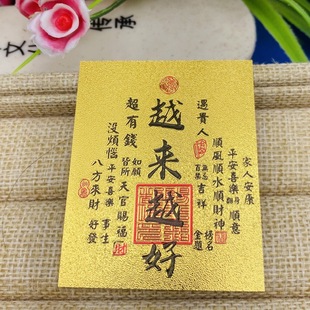 家人安康
平安喜樂
順意
順風順水順財神
遇貴人
百無禁忌
吉祥
金榜題名
越来越好
超有錢
皆所如願
天官賜福
没煩惱
平安喜樂
八方來財
好事發生
传承